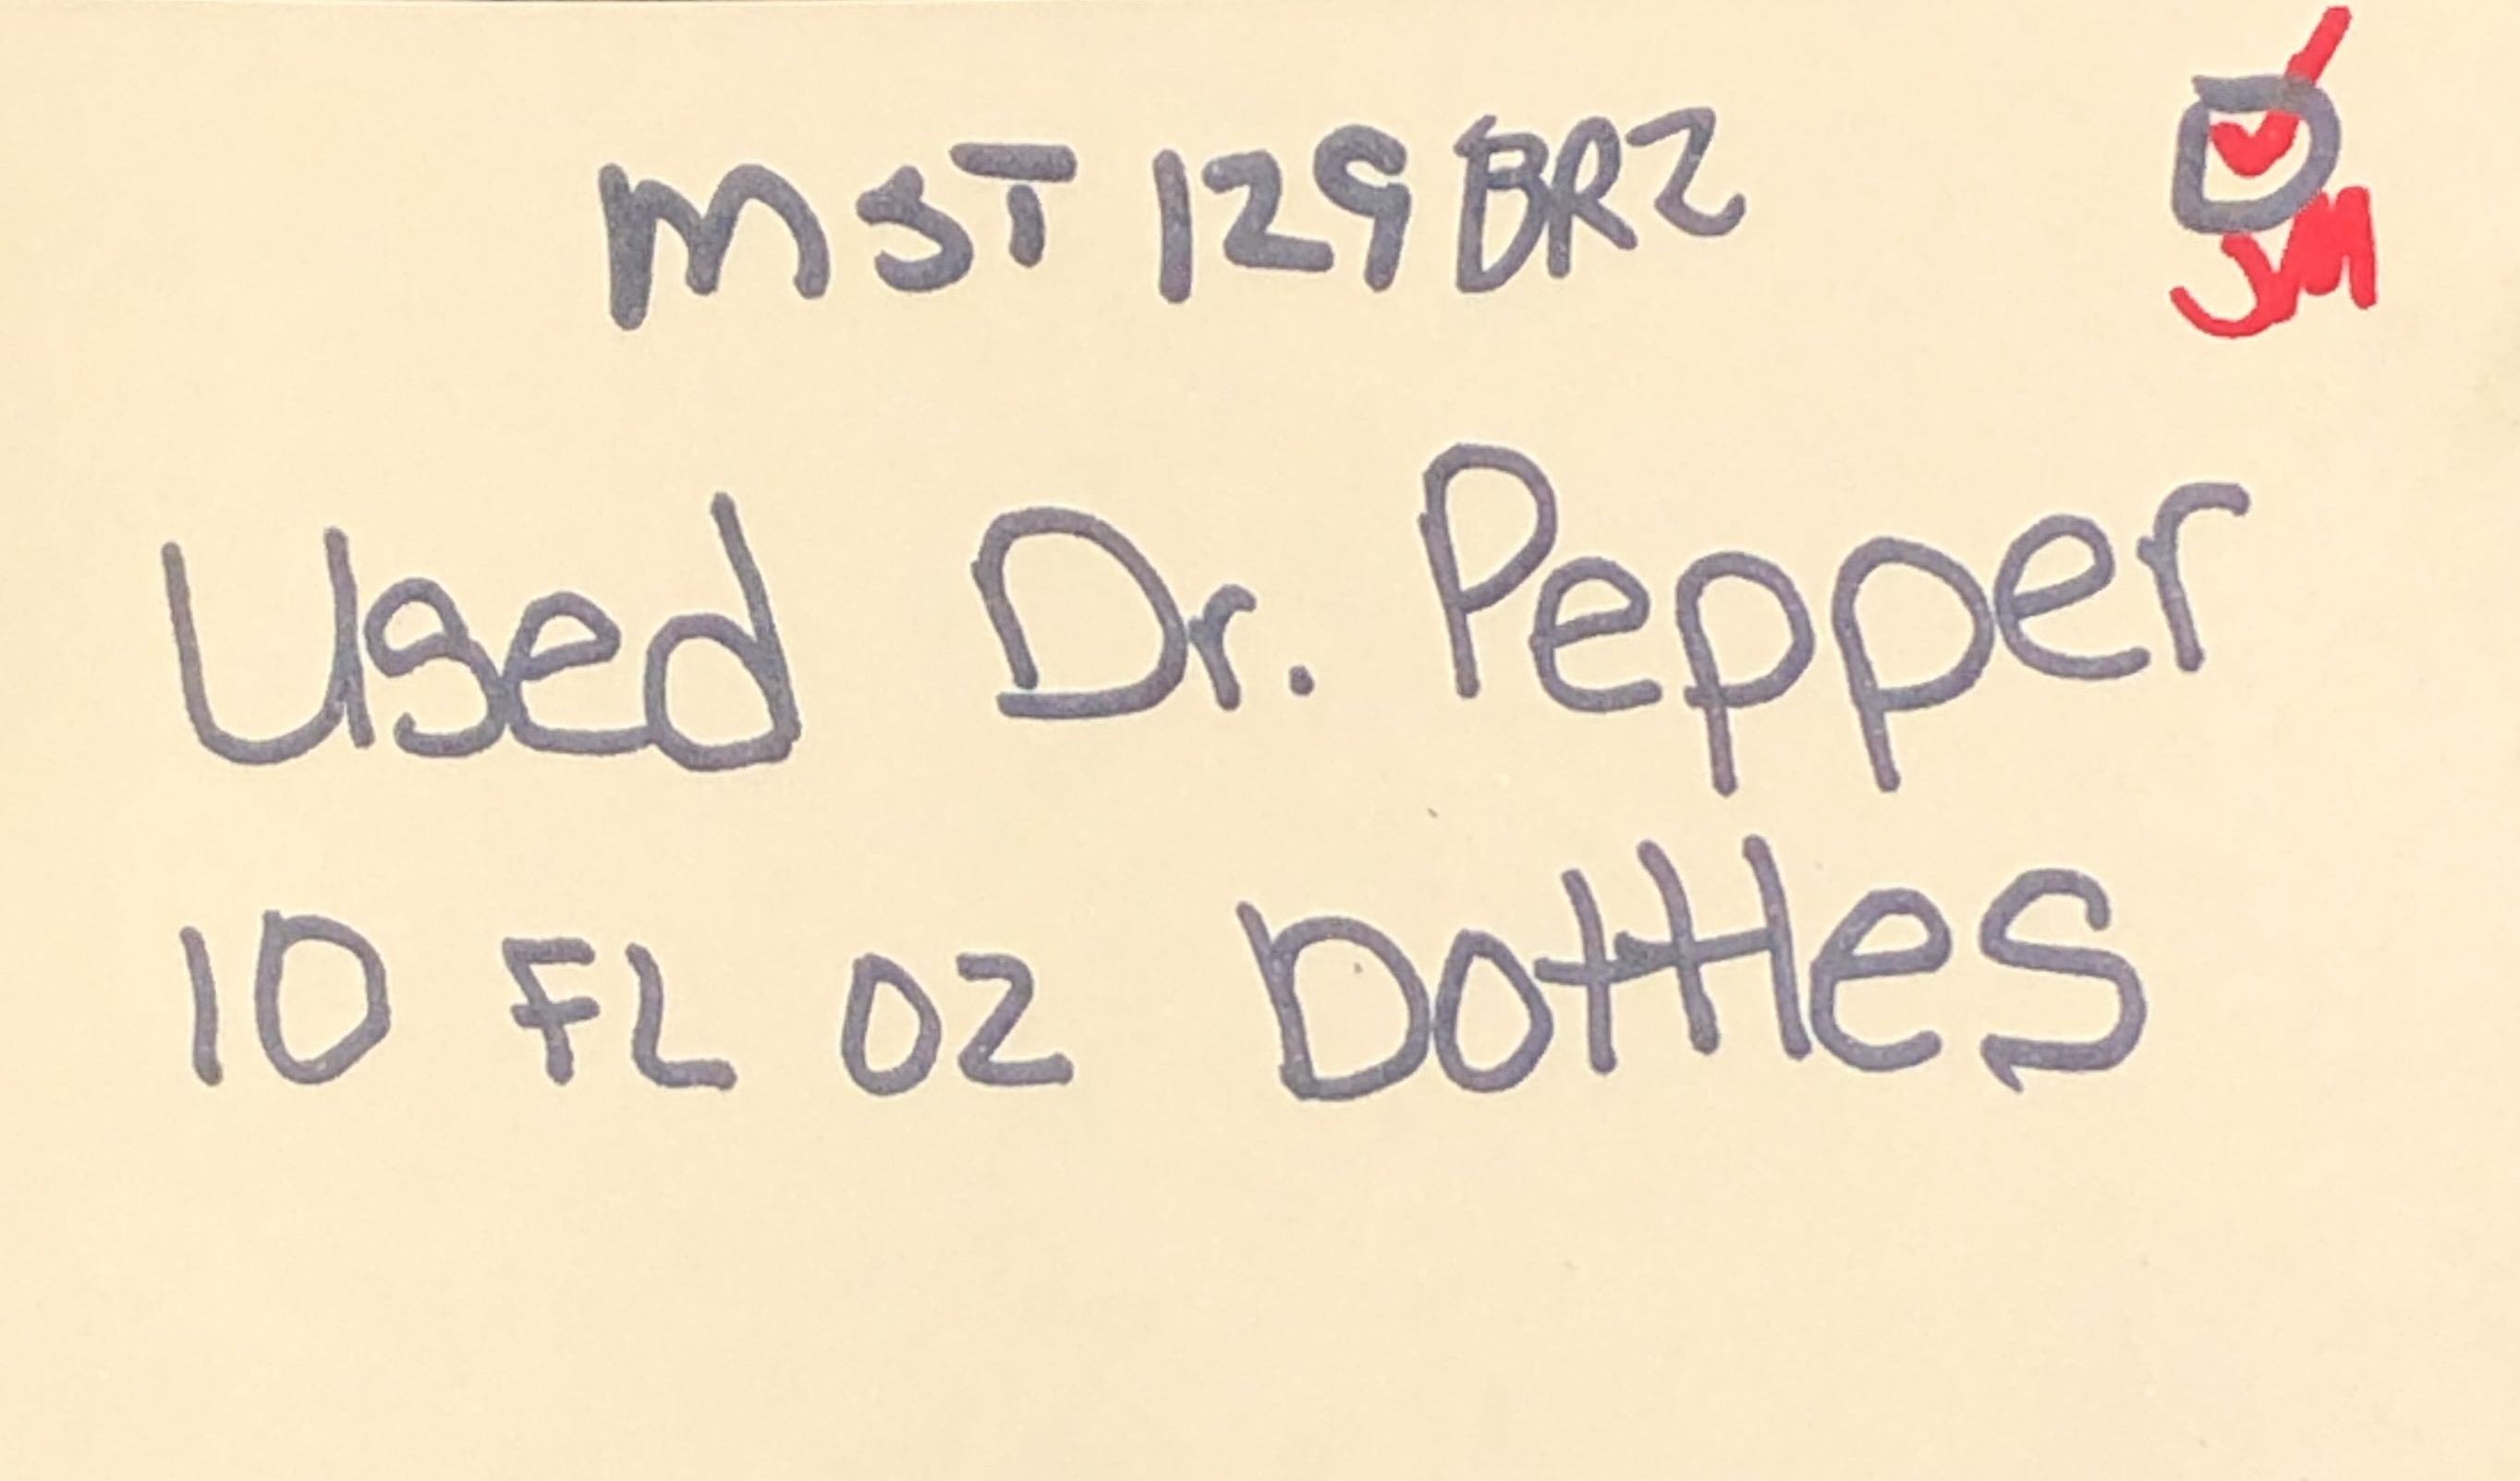 MST 129 BRZ
JM
Used Dr. Pepper
10 FL OZ bottles